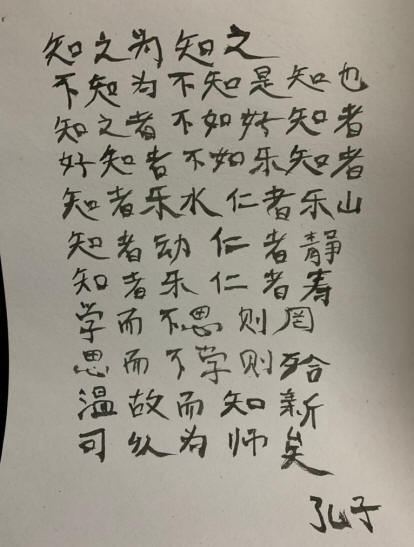 知之为知之
不知为不知是知也
知之者不如好知者
好知者不如乐知者
知者乐水仁者乐山
知者动仁者静
知者乐仁者寿
学而不思则罔
思而不学则殆
温故而知新
可以为师矣
孔子